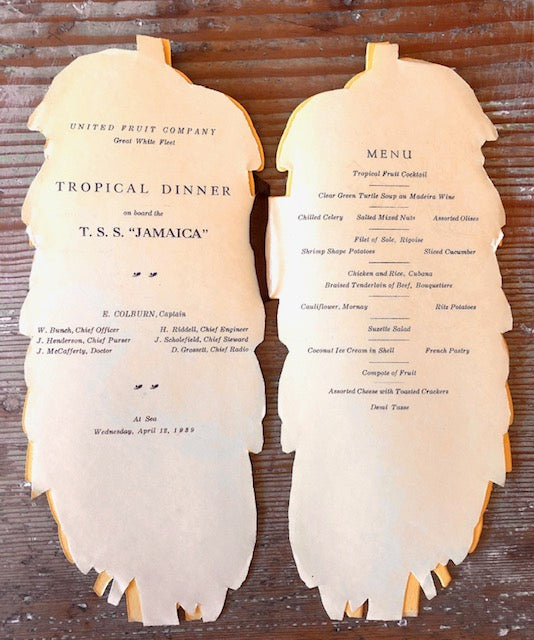 UNITED FRUIT COMPANY
Great White Fleet
TROPICAL DINNER
on board the
T. S. S. "JAMAICA"
E. COLBURN, Captain
W. Bunch, Chief Officer H. Riddell, Chief Engineer
J. Henderson, Chief Purser J. Scholefield, Chief Steward
J. McCafferty, Doctor D. Grossett, Chief Radio
At Sea
Wednesday, April 12, 1939
MENU
Tropical Fruit Cocktail
Clear Green Turtle Soup au Madeira Wine
Chilled Celery Salted Mixed Nuts Assorted Olives
Filet of Sole, Rigoise
Shrimp Shape Potatoes Sliced Cucumber
Chicken and Rice, Cubana
Braised Tenderloin of Beef, Bouquetiere
Cauliflower, Mornay Ritz Potatoes
Suzette Salad
Coconut Ice Cream in Shell French Pastry
Compote of Fruit
Assorted Cheese with Toasted Crackers
Demi Tasse